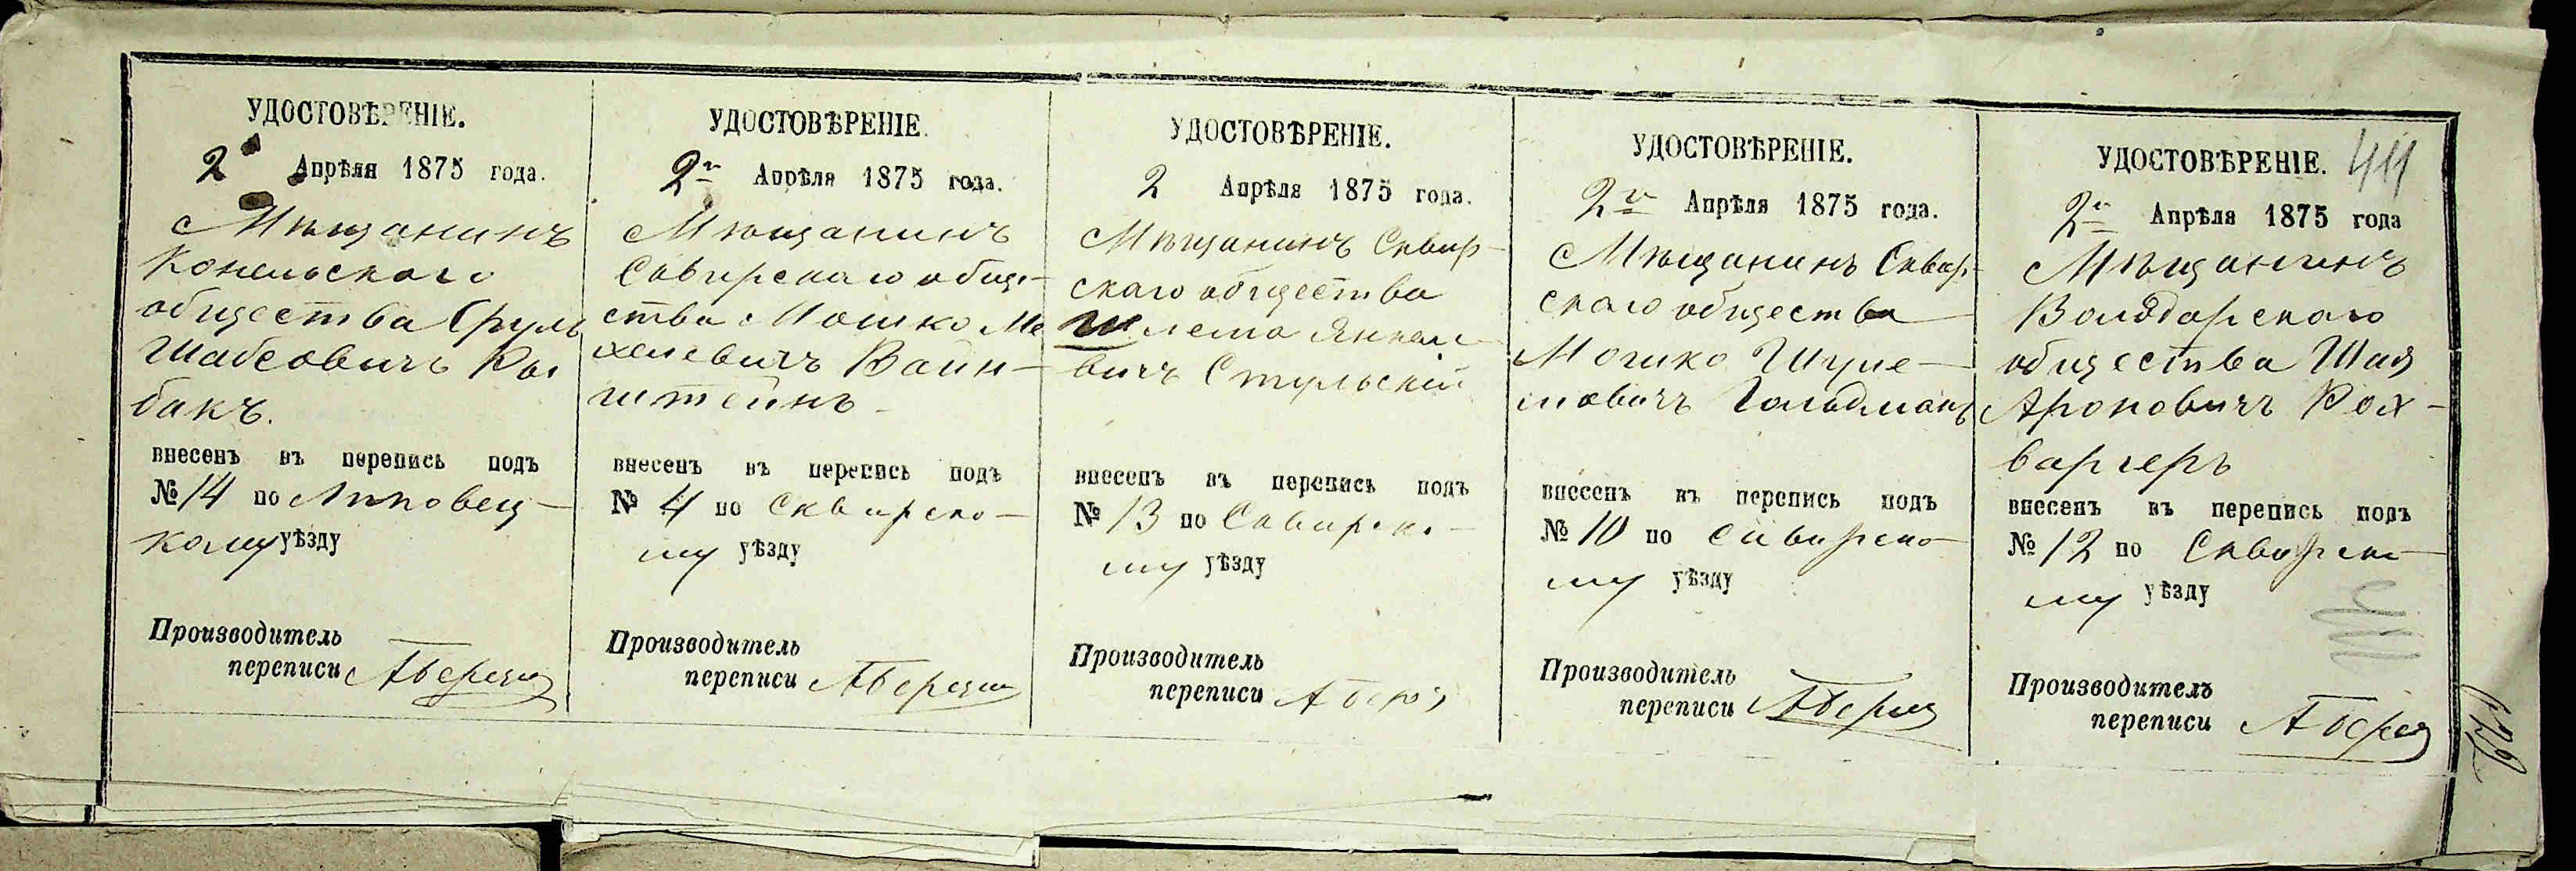 УДОСТОВѢРЕНІЕ.
2 Апрѣля 1875 года.
Мѣщанинъ
Конельскаго
общества Сруль
Шабсовичъ Ры
бакъ.
внесенъ въ перепись подъ
№ 14 по Липовец-
кому уѣзду
Производитель
переписи
УДОСТОВѢРЕНІЕ.
2го Апрѣля 1875 года.
Мѣщанинъ
Сквирскаго общe-
ства Мошко Ме
хелевичъ Вайн-
штейнъ
внесенъ въ перепись подъ
№ 4 по Сквирско-
му уѣзду
Производитель
переписи
УДОСТОВѢРЕНІЕ.
2 Апрѣля 1875 года.
Мѣщанинъ Сквир-
скаго общества
Шлема Янкеле-
вичъ Стульскій
внесенъ въ перепись подъ
№ 13 по Сквирско-
му уѣзду
Производитель
переписи
УДОСТОВѢРЕНІЕ.
2го Апрѣля 1875 года.
Мѣщанинъ Сквир-
скаго общества
Мошко Шуле-
мовичъ Гольдманъ
внесенъ въ перепись подъ
№ 10 по Сквирско-
му уѣзду
Производитель
переписи
УДОСТОВѢРЕНІЕ.
44
2го Апрѣля 1875 года
Мѣщанинъ
Володарскаго
общества Шая
Ароновичъ Рох-
варгеръ
внесенъ въ перепись подъ
№ 12 по Сквирско-
му уѣзду
Производитель
переписи